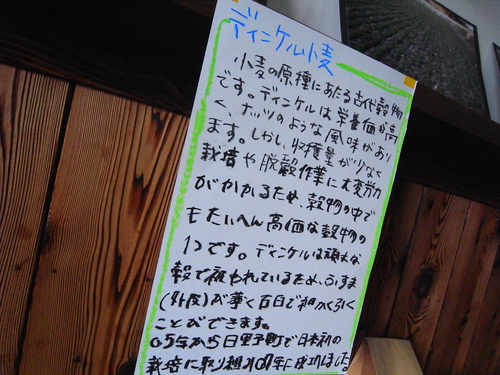 ディンケル小麦
小麦の原種にあたる古代穀物
です。ディンケルは栄養価が高
く ナッツのような風味があり
ます。しかし、収穫量が少なく
栽培や脱穀作業に大変労力
がかかるため、穀物の中で
もたいへん高価な穀物の
1つです。ディンケルは頑丈な
殻で被われているため、ふすま
(外皮)が薄く石臼で細かく引く
ことができます。
05年から日野町で日本初の
栽培に取り組み07年に成功しました